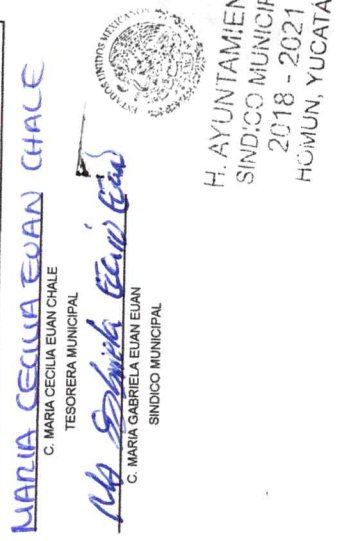 MARIA CECILIA EUAN CHALE
C. MARIA CECILIA EUAN CHALE
TESORERA MUNICIPAL
Ma Gabriela Euan Euan
C. MARIA GABRIELA EUAN EUAN
SINDICO MUNICIPAL
ESTADOS UNIDOS MEXICANOS
H. AYUNTAMIEN
SINDICO MUNICIP
2018 - 2021
HOMUN, YUCATÁ